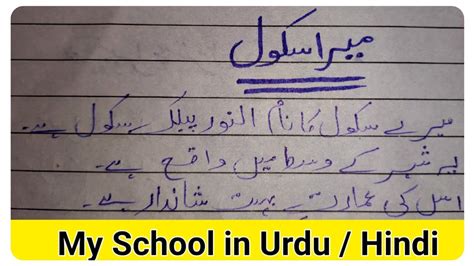 میرا سکول
میرے سکول کا نام النور پبلک سکول ہے۔
یہ شہر کے وسط میں واقع ہے۔
اس کی عمارت بہت شاندار ہے۔
My School in Urdu / Hindi